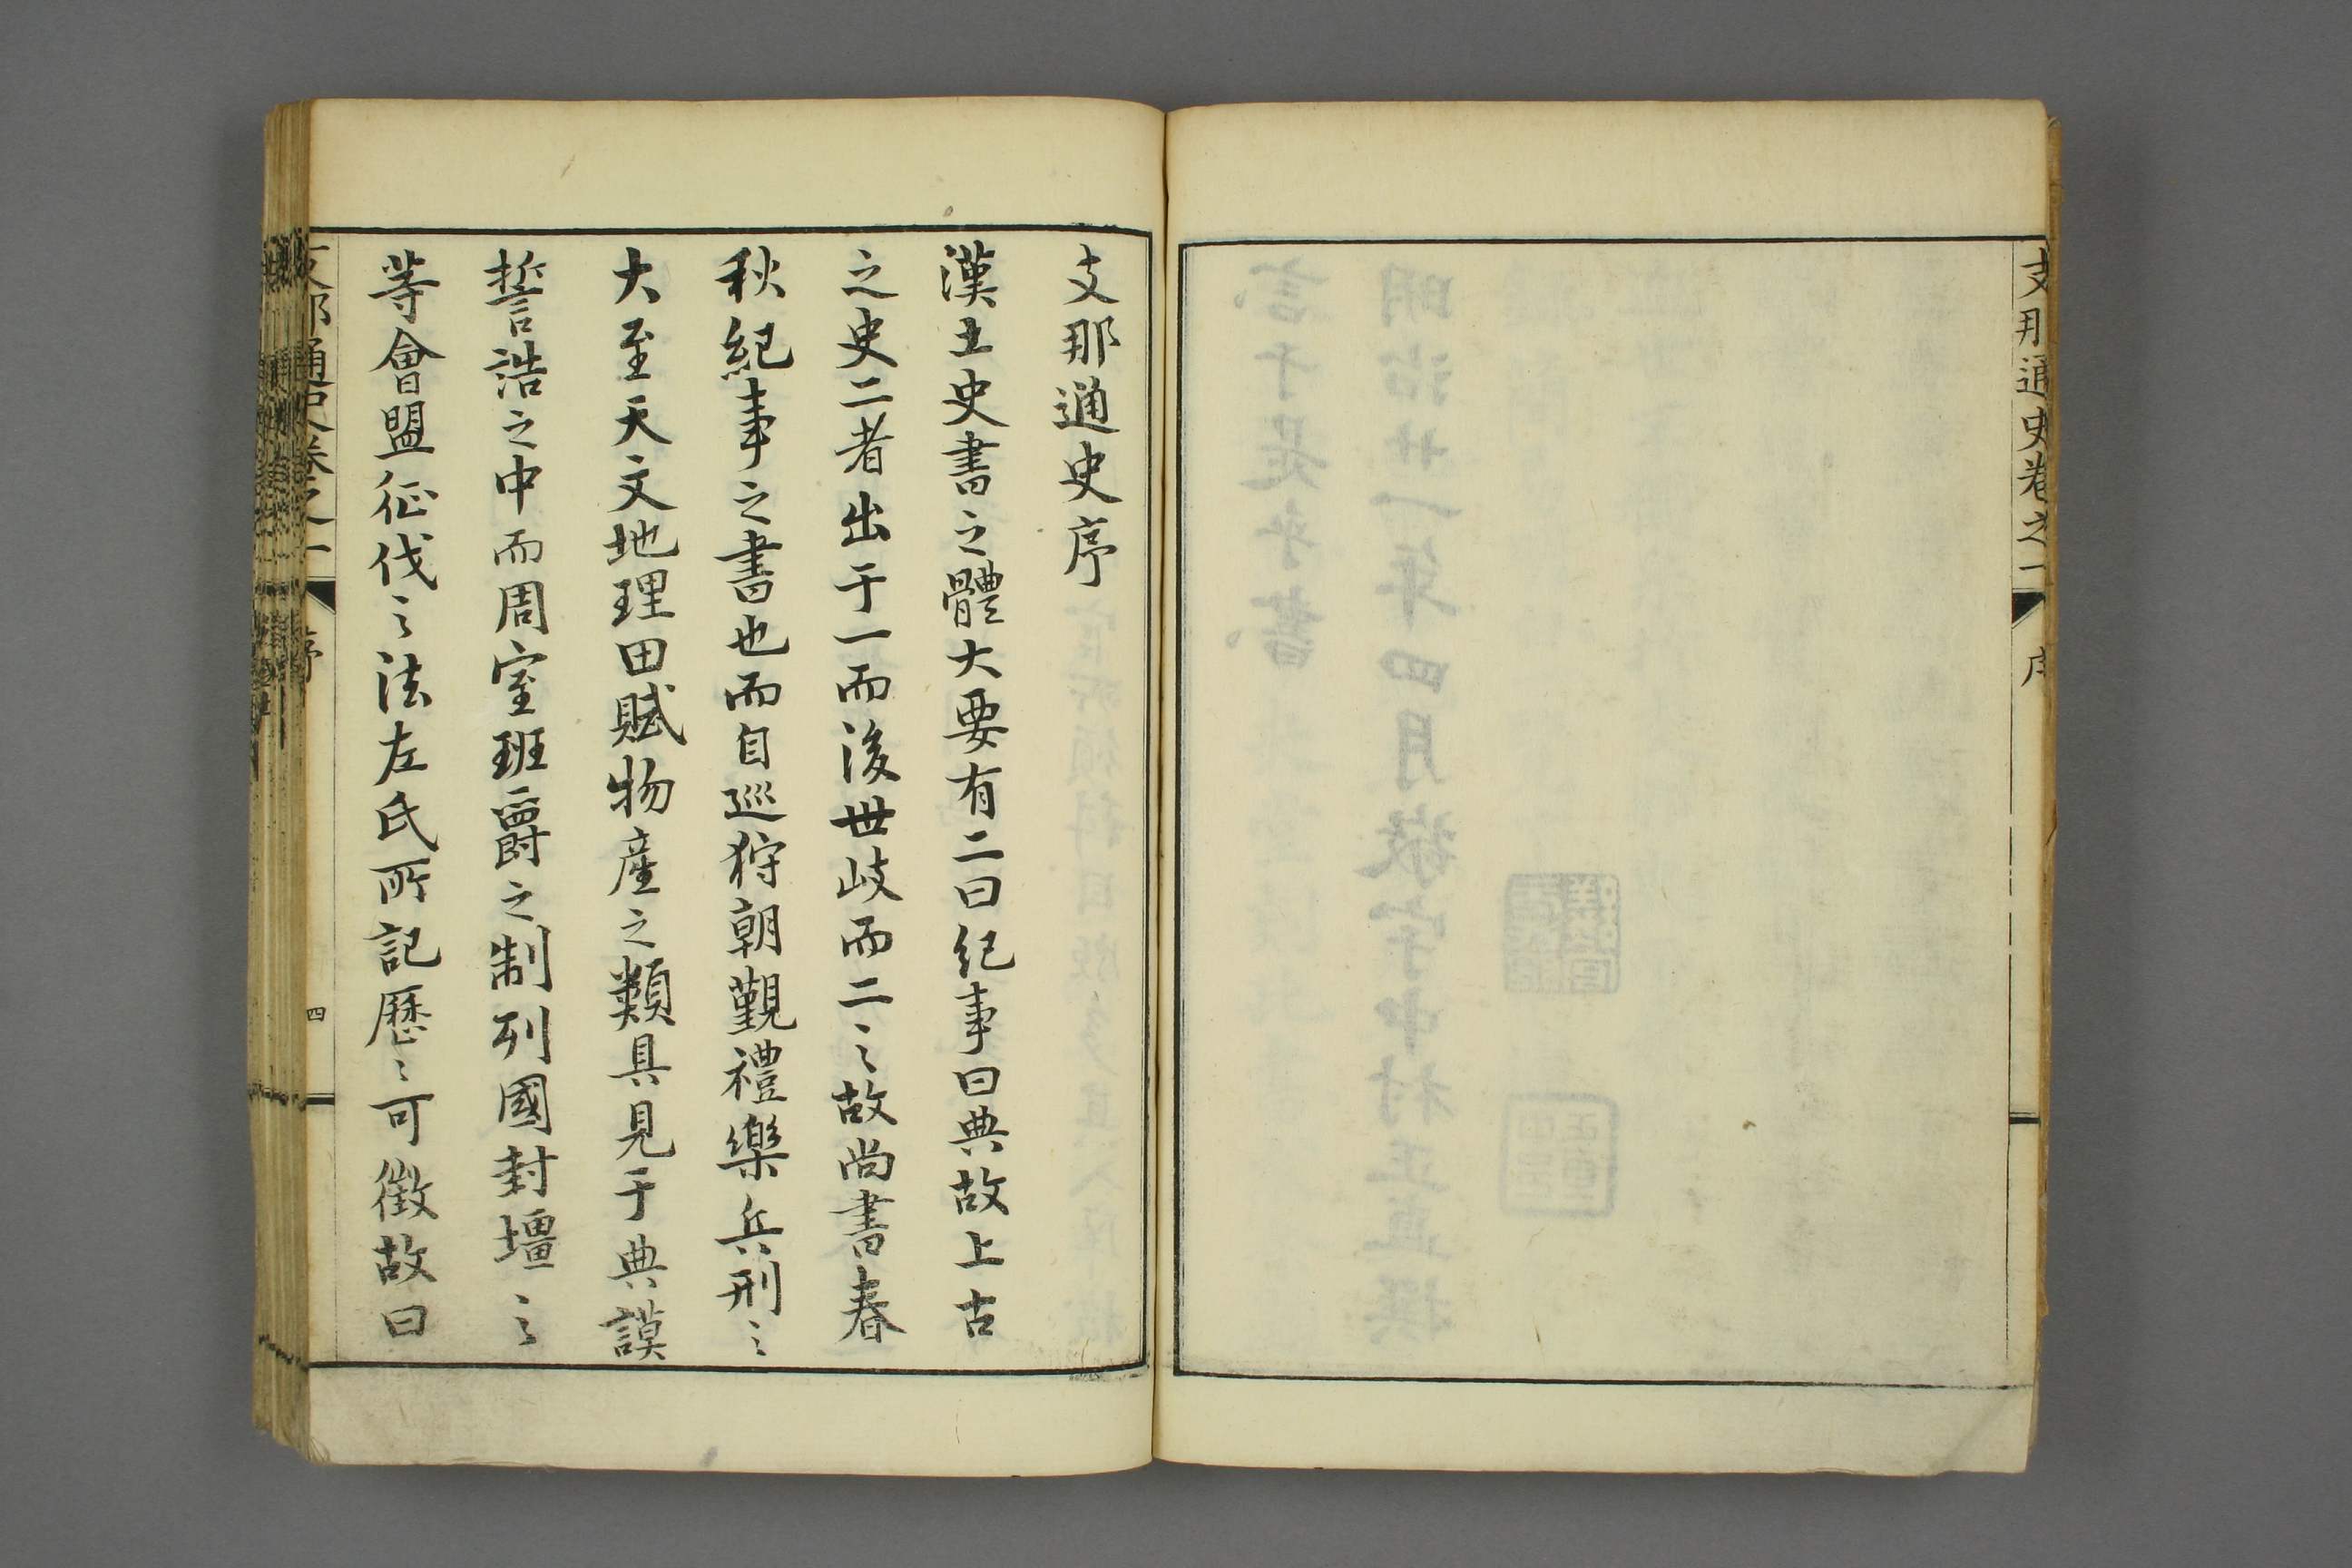 支那通史卷之一
序
支那通史序
漢土史書之體大要有二曰紀事曰典故上古
之史二者出于一而後世歧而二之故尚書春
秋紀事之書也而自巡狩朝覲禮樂兵刑之
大至天文地理田賦物產之類具見于典謨
誓誥之中而周室班爵之制列國封壇之
等會盟征伐之法左氏所記歷々可徵故曰
支那通史卷之一
序
四